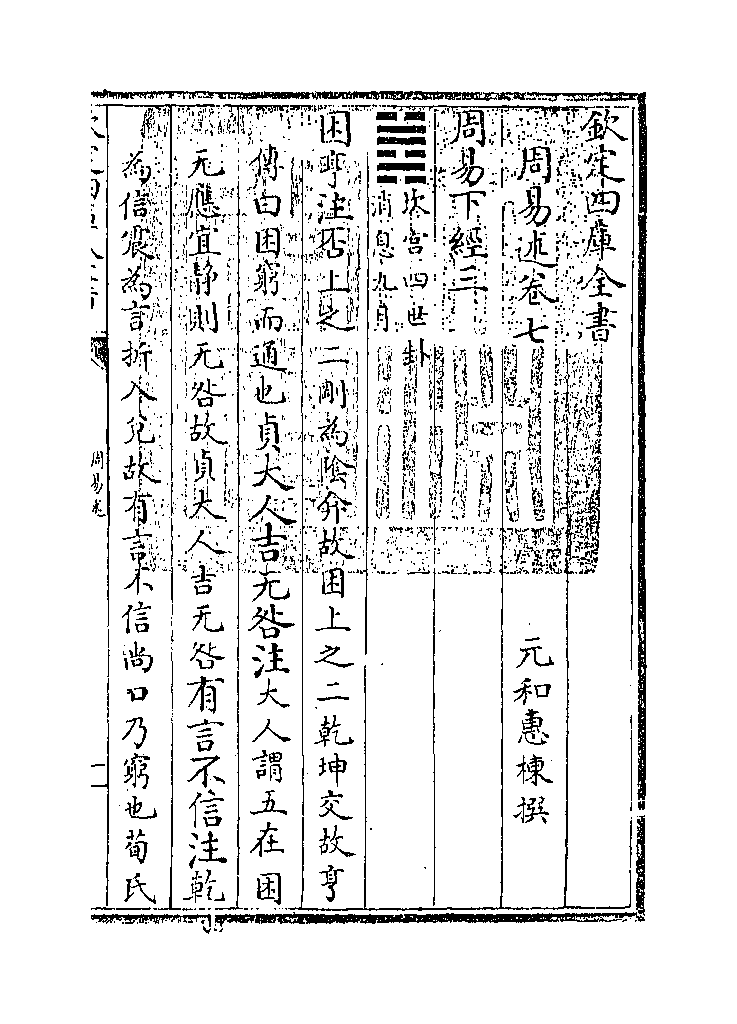 欽定四庫全書
周易述卷七
元和惠棟撰
周易下經三
坎宮四世卦
消息九月
困亨注否上之二剛為陰弇故困上之二乾坤交故亨
傳曰困窮而通也貞大人吉无咎注大人謂五在困
无應宜静則无咎故貞大人吉无咎有言不信注乾
為信震為言折入兌故有言不信尚口乃窮也荀氏
周易述
一